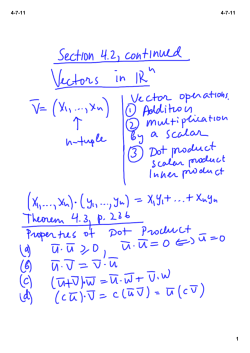 4-7-11 4-7-11
Section 4.2, continued
Vectors in ℝⁿ
V̄ = (x₁, ..., xₙ)
↑
n-tuple
Vector operations
① Addition
② multiplication
By a scalar
③ Dot product
Scalar product
Inner product
(x₁, ..., xₙ)·(y₁, ..., yₙ) = x₁y₁ + ... + xₙyₙ
Theorem 4.3, p. 236
Properties of Dot Product
(a) ū·ū ≥ 0, ū·ū = 0 ⟺ ū = 0
(b) ū·v̄ = v̄·ū
(c) (ū+v̄)·w̄ = ū·w̄ + v̄·w̄
(d) (cū)·v̄ = c(ūv̄) = ū(cv̄)
1